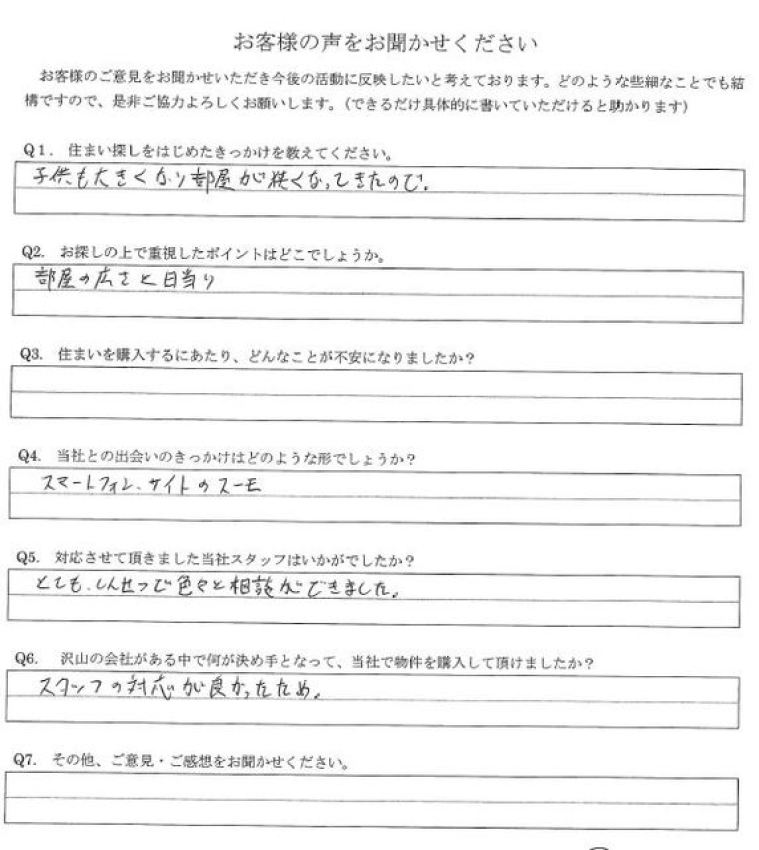 お客様の声をお聞かせください
お客様のご意見をお聞かせいただき今後の活動に反映したいと考えております。どのような些細なことでも結
構ですので、是非ご協力よろしくお願いします。（できるだけ具体的に書いていただけると助かります）
Q1. 住まい探しをはじめたきっかけを教えてください。
子供も大きくなり部屋が狭くなってきたので。
Q2. お探しの上で重視したポイントはどこでしょうか。
部屋の広さと日当り
Q3. 住まいを購入するにあたり、どんなことが不安になりましたか？
Q4. 当社との出会いのきっかけはどのような形でしょうか？
スマートフォン、サイトのスーモ
Q5. 対応させて頂きました当社スタッフはいかがでしたか？
とても、しんせつで色々と相談ができました。
Q6. 沢山の会社がある中で何が決め手となって、当社で物件を購入して頂けましたか？
スタッフの対応が良かったため。
Q7. その他、ご意見・ご感想をお聞かせください。